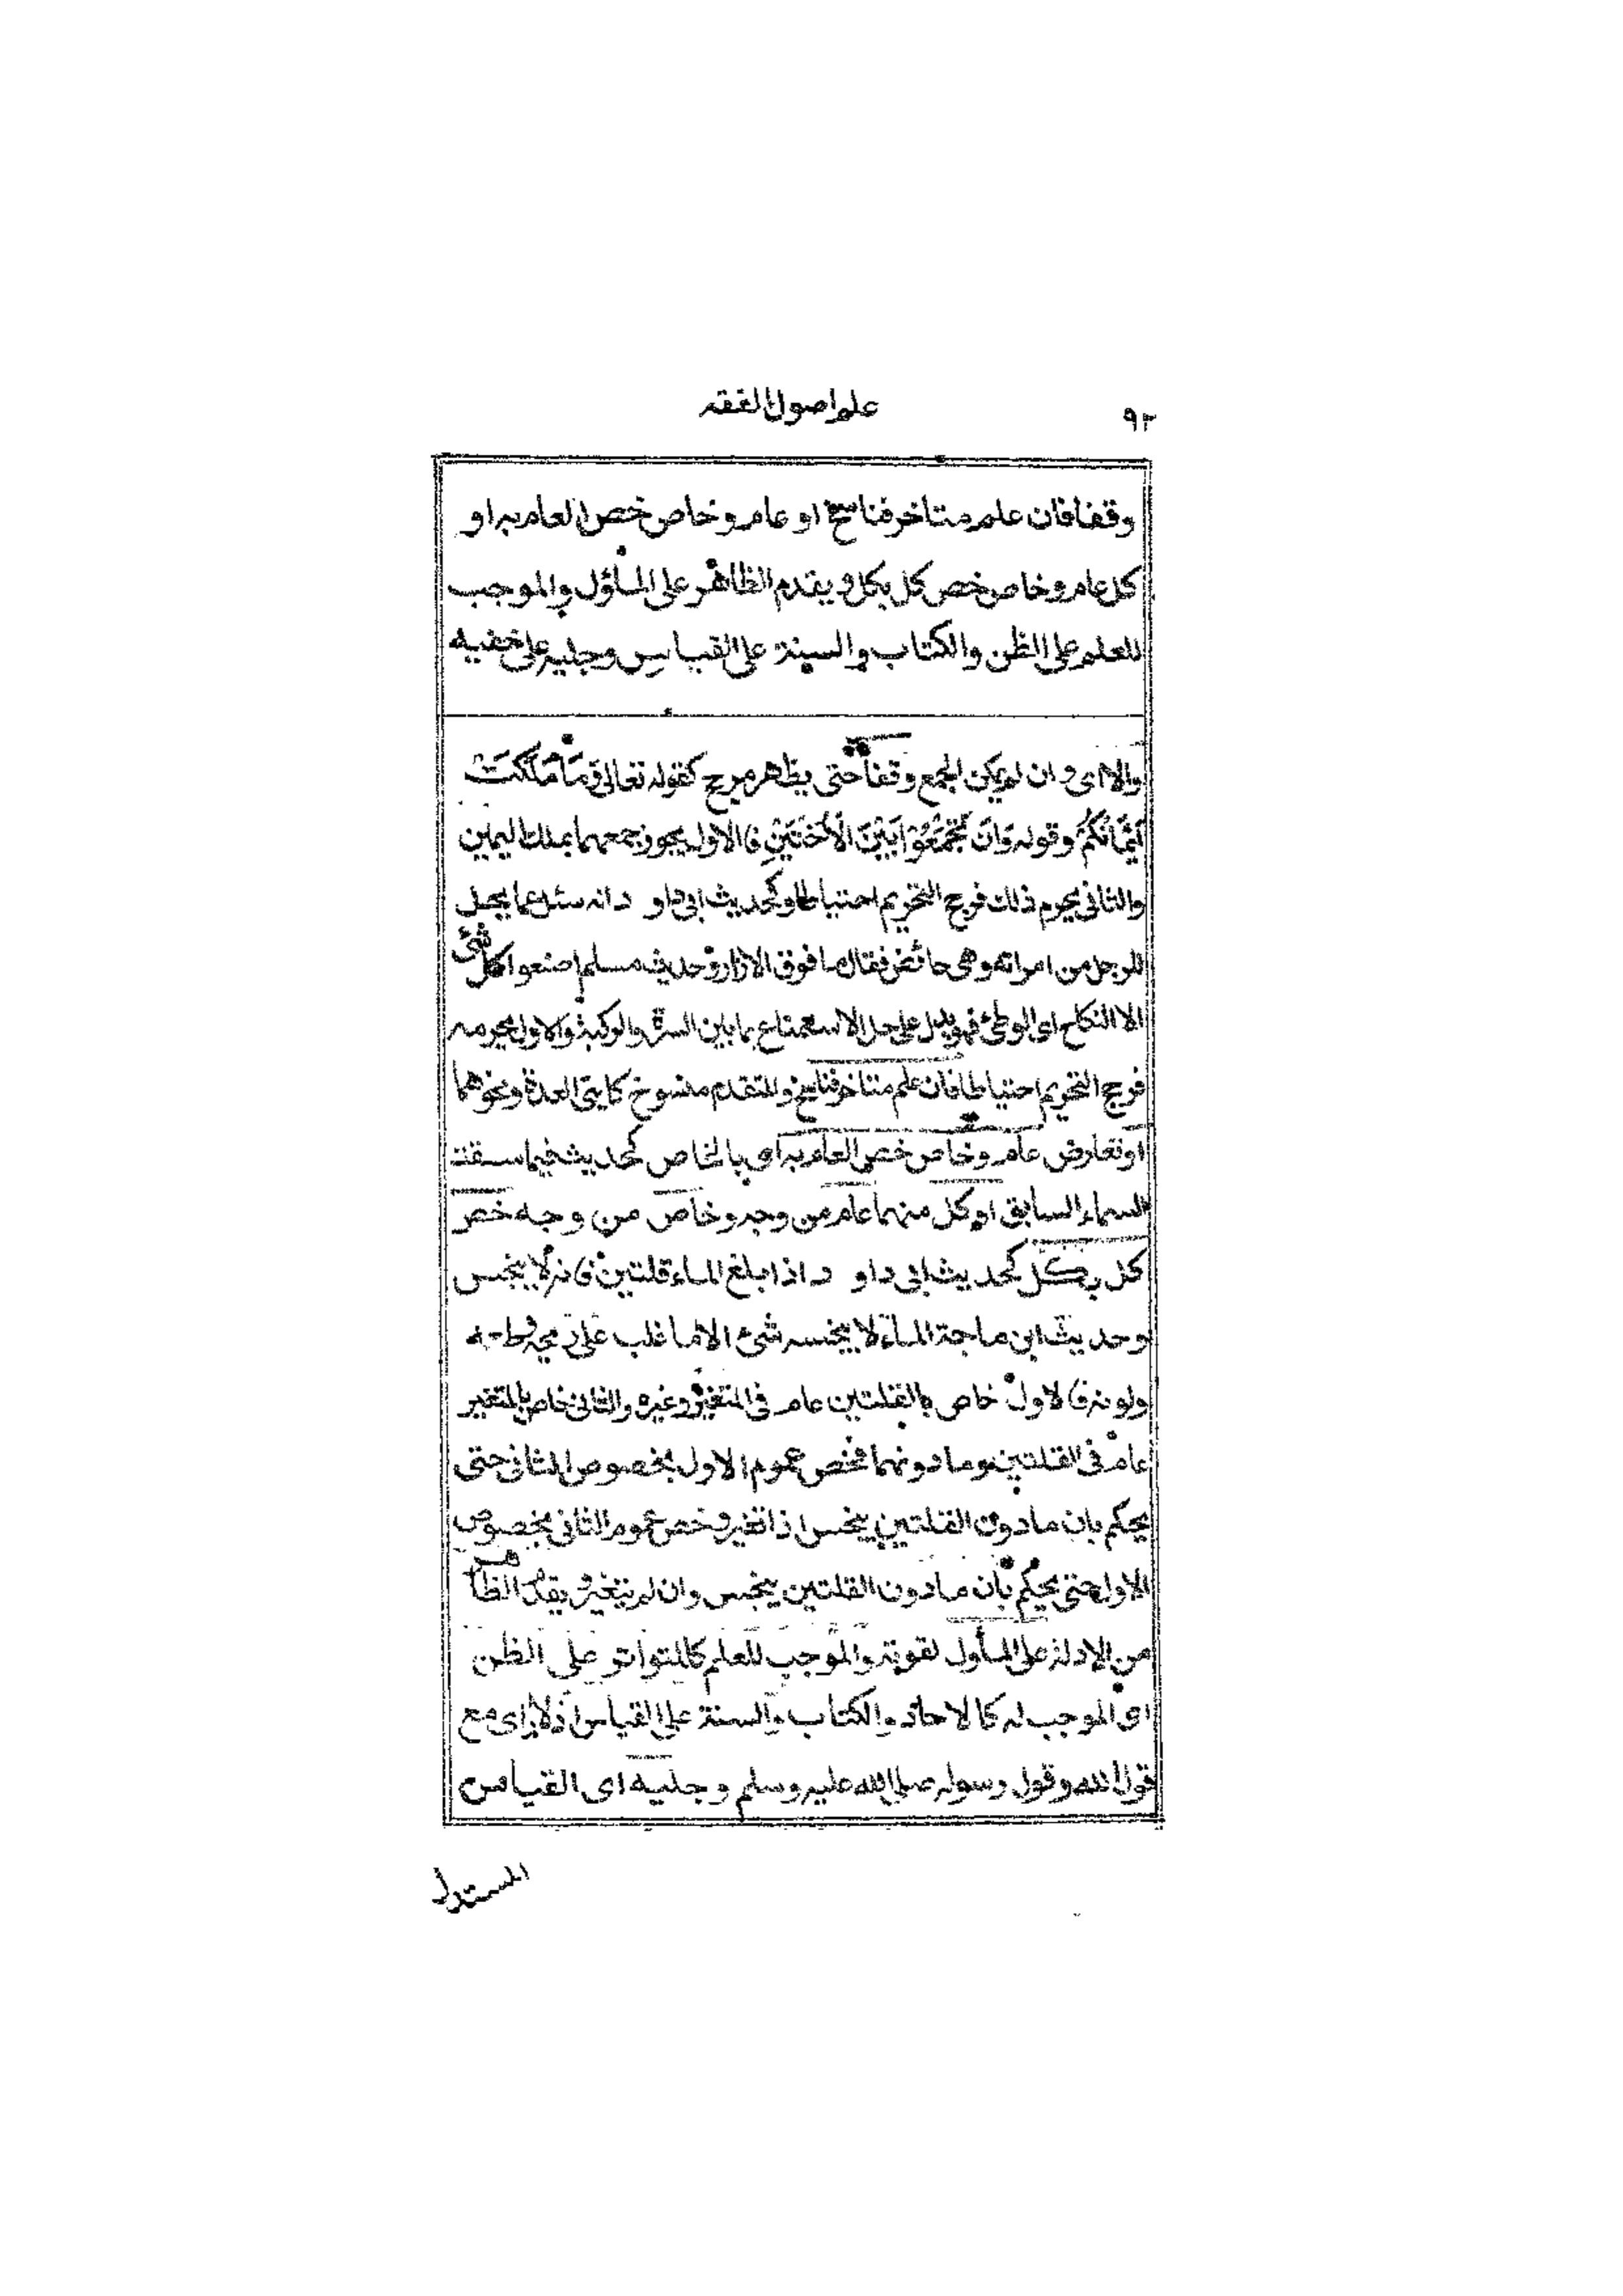 ٩٢
علم اصول الفقه
وقفا فان علم متاخر فناسخ او عام و خاص خص العام به او
كل عام و خاص خص كل بكل و يقدم الظاهر على المأول والموجب
للعلم على الظن والكتاب والسنة على القياس وجليه على خفيه
والا اى وان لم يمكن الجمع وقفا حتى يظهر مرجح كقوله تعالى وَمَا مَلَكَتْ
اَيْمَانُكُمْ وقوله وَاَنْ تَجْمَعُوْا بَيْنَ الْاُخْتَيْنِ فالاول يجوز جمعهما بملك اليمين
والثانى يحرم ذلك فرجح التحريم احتياطا وكحديث ابى داو د انه سئل عما يحل
للرجل من امراته وهى حائض فقال ما فوق الازار وحديث مسلم اصنعوا كل شئ
الا النكاح اى الوطئ فهو يدل على حل الاستمتاع بما بين السرة والركبة والاول يحرمه
فرجح التحريم احتياطا فان علم متاخر فناسخ والمتقدم منسوخ كايتى العدة ونحوهما
او تعارض عام و خاص خص العام به اى بالخاص كحديث فيما سقت
السماء السابق او كل منهما عام من وجه وخاص من وجه خص
كل بكل كحديث ابى داو د اذا بلغ الماء قلتين فانه لا ينجس
وحديث ابن ماجة الماء لا ينجسه شئ الا ما غلب على ريحه وطعمه
ولونه فالاول خاص بالقلتين عام فى المتغير وغيره والثانى خاص بالمتغير
عام فى القلتين وما دونهما فخص عموم الاول بخصوص الثانى حتى
يحكم بان ما دون القلتين ينجس اذا تغير وخص عموم الثانى بخصوص
الاول حتى يحكم بان ما دون القلتين ينجس وان لم يتغير ويقدم الظاهر
من الادلة على المأول لقوته والموجب للعلم كالمتواتر على الظن
اى الموجب له كالاحاد والكتاب والسنة على القياس اذ لا راى مع
قول الله وقول رسوله صلى الله عليه وسلم وجليه اى القياس
المستدل